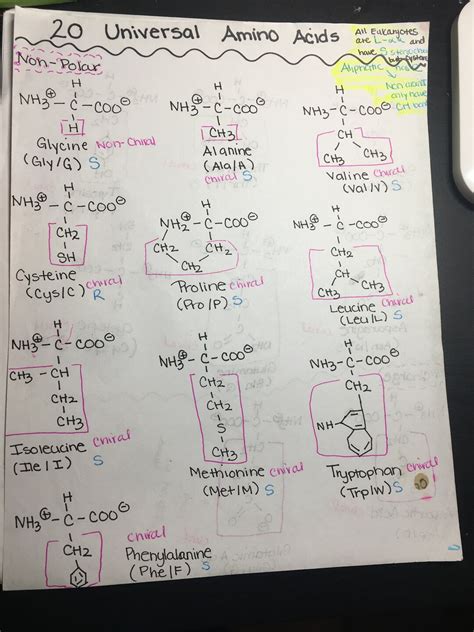 20 Universal Amino Acids
All Eukaryotes
are L-αAA and
have S
Aliphatic
Non-Polar
H
NH3⊕-C-COO⊖
H
Glycine Non-Chiral
(Gly/G) S
H
NH3⊕-C-COO⊖
CH3
Alanine
(Ala/A)
chiral S
H
NH3⊕-C-COO⊖
CH
CH3 CH3
Valine chiral
(Val/V) S
H
NH3⊕-C-COO⊖
CH2
SH
Cysteine chiral
(Cys/C) R
H
NH2⊕-C-COO⊖
CH2 CH2
CH2
Proline chiral
(Pro/P) S
H
NH3⊕-C-COO⊖
CH2
CH
CH3 CH3
Leucine chiral
(Leu/L) S
H
NH3⊕-C-COO⊖
CH3-CH
CH2
CH3
Isoleucine chiral
(Ile/I) S
H
NH3⊕-C-COO⊖
CH2
CH2
S
CH3
Methionine chiral
(Met/M) S
H
NH3-C-COO⊖
CH2
NH
Tryptophan chiral
(Trp/W) S
H
NH3⊕-C-COO⊖
CH2
chiral
Phenylalanine
(Phe/F) S